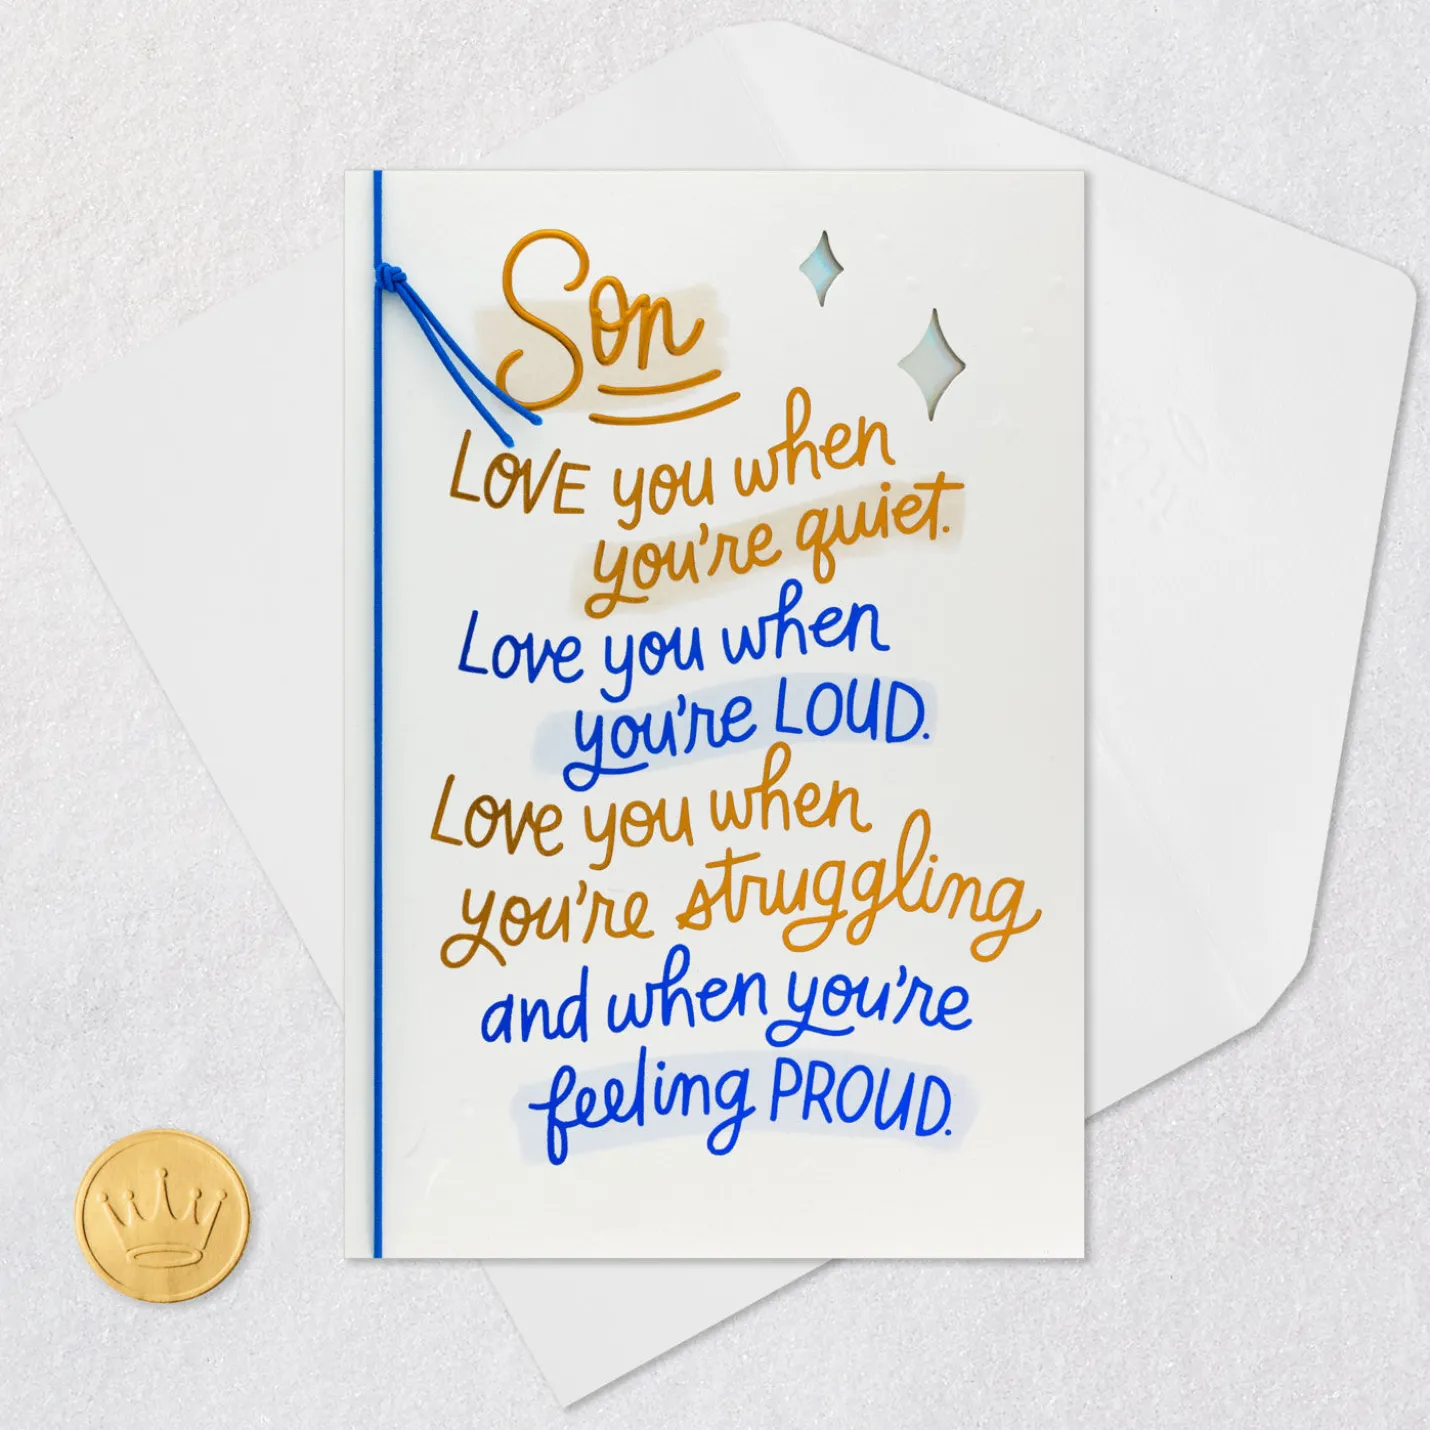 Son
LOVE you when
you're quiet.
Love you when
you're LOUD.
Love you when
you're struggling
and when you're
feeling PROUD.